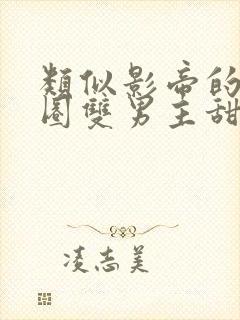 類似影帝的
圈雙男主甜
凌志美